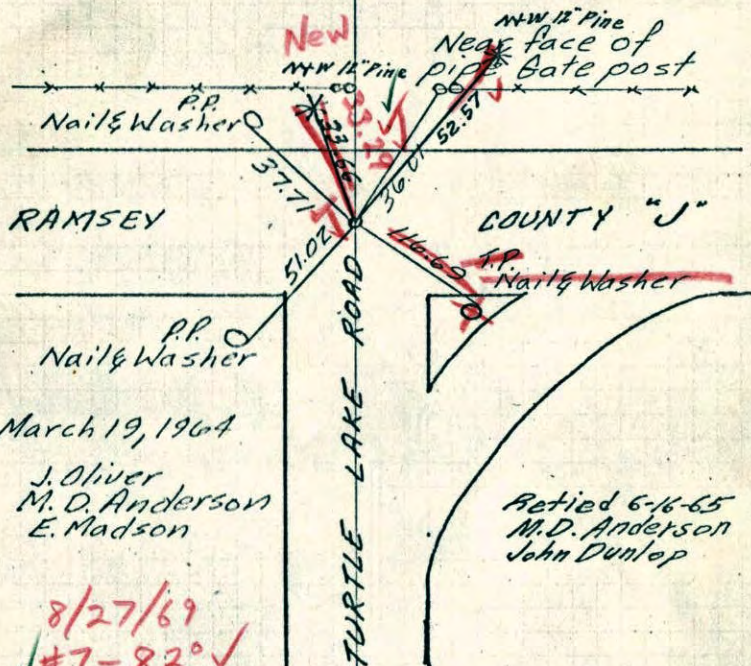 New
N+W 12" Pine
Near face of
N+W 12" Pine
pipe Gate post
P.P.
Nail & Washer
33.66
33.29
52.57
37.71
36.01
RAMSEY
COUNTY "J"
51.02
116.60
T.P.
Nail & Washer
P.P.
Nail & Washer
TURTLE LAKE ROAD
March 19, 1964
J. Oliver
M. D. Anderson
E. Madson
Retied 6-16-65
M.D. Anderson
John Dunlop
8/27/69
#7-82°